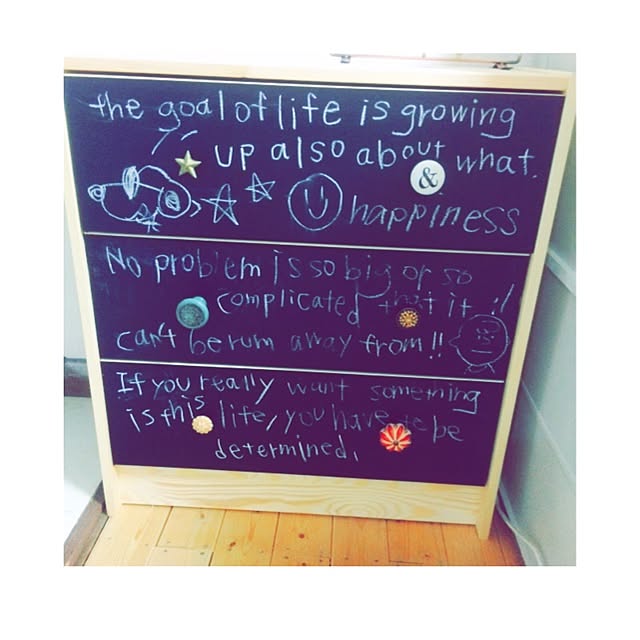 the goal of life is growing
up also about what.
&
happiness
No problem is so big or so
complicated that it
can't be rum away from!!
If you really want something
is this life, you have to be
determined.